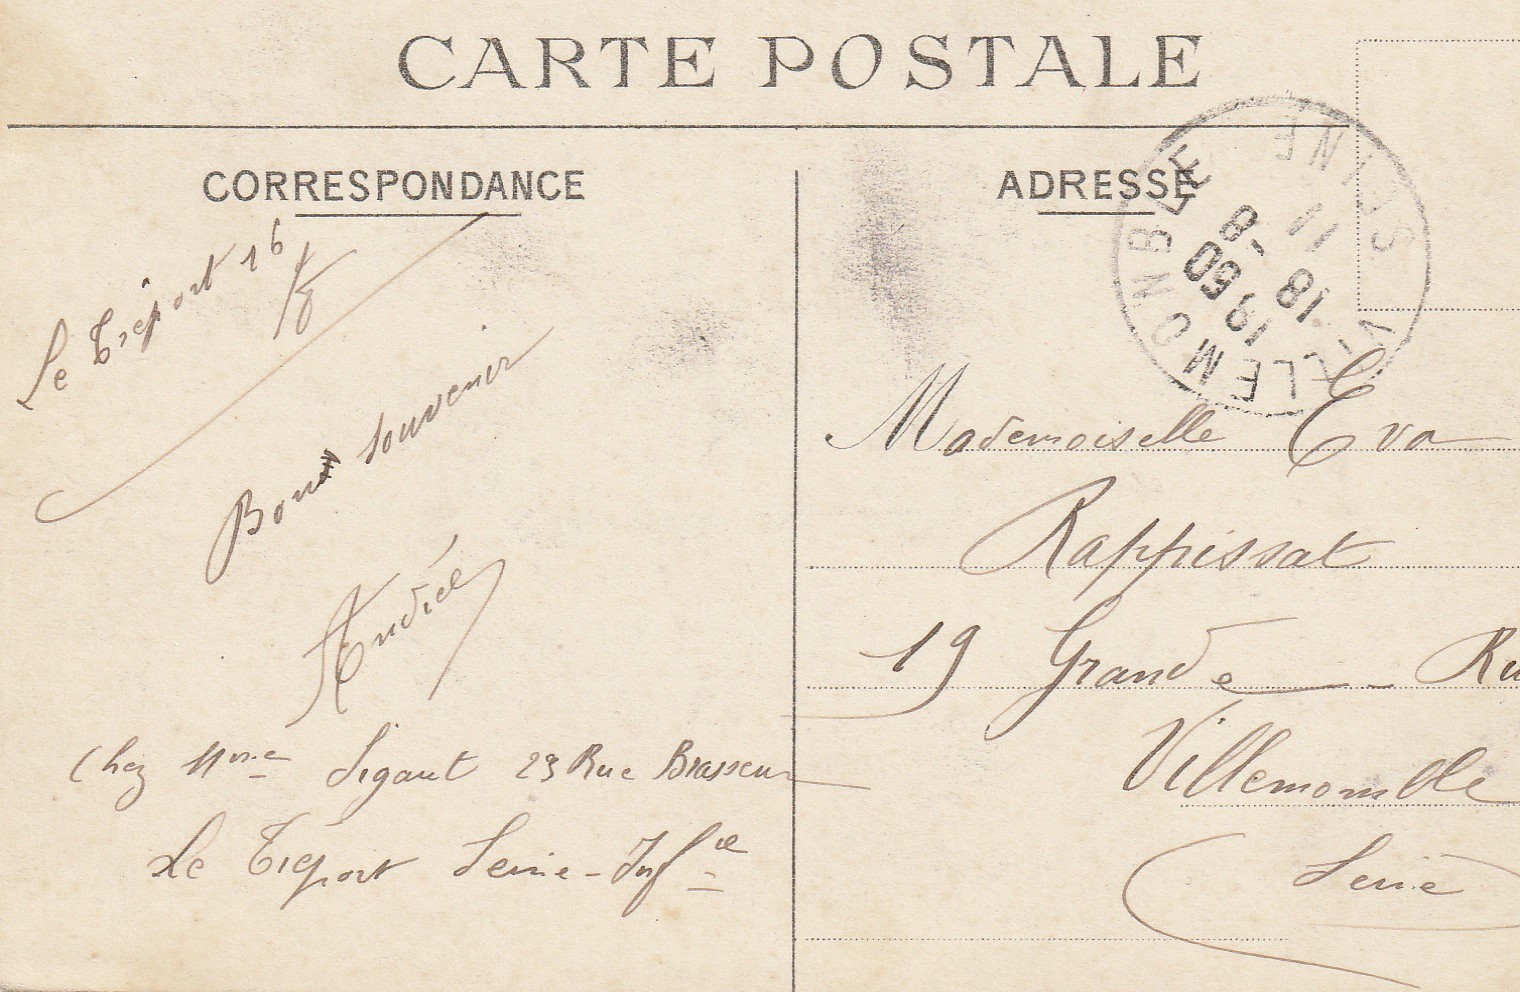 CARTE POSTALE
CORRESPONDANCE
Le Tréport 16/8
Bons souvenir
Andrée
Chez Mme Sigaut 23 Rue Brasseur
Le Tréport Seine-Infre
ADRESSE
VILLEMOMBLE
SEINE
18 11
1950 -8
Mademoiselle Eva
Rappissat
19 Grande-Ru
Villemomble
Seine